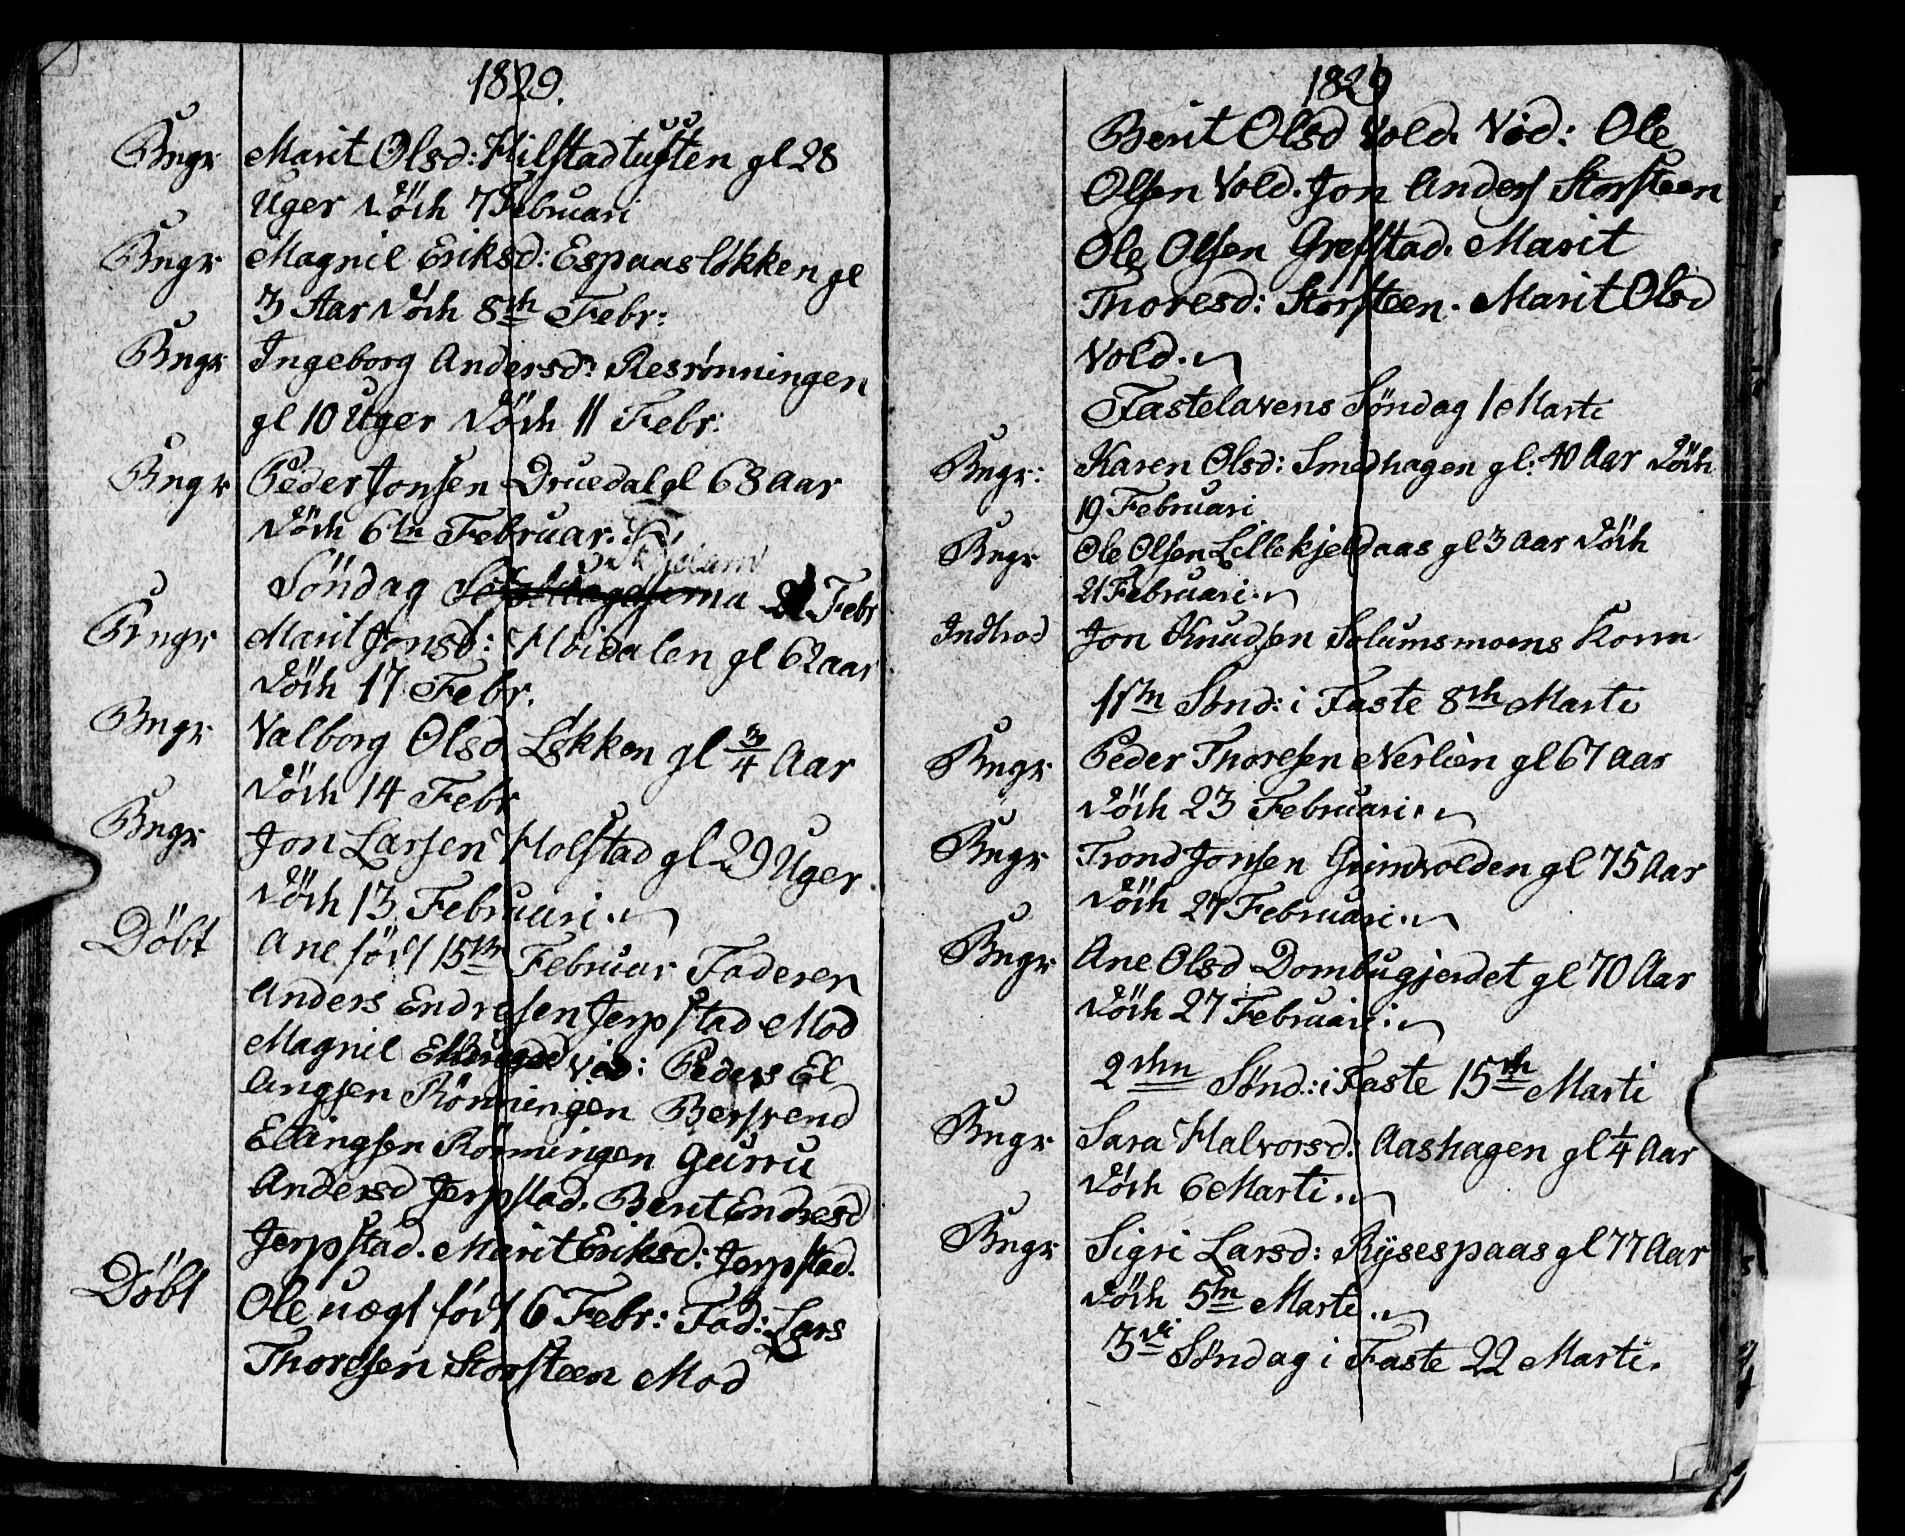 1829.
Bngr Marit Olsd: Hilstadtusten gl 28
Uger Död 7 Februari
Bngr Magnil Eriksd: Espaasløkken gl
3 Aar Död 8de Febr:
Bngr Ingeborg Andersd: Resrønningen
gl 10 Uger Död 11 Febr:
Bngr Peder Jonsen Druedal gl 68 aar
Död 6te Februar.
Söndag 21 Febr
Bngr Marit Jonsd: Höidalen gl 62 aar
Död 17 Febr.
Bngr Valborg Olsd Løkken gl 3/4 Aar
Död 14 Febr
Bngr Jon Larsen Holstad gl 29 Uger
Död 13 Februari.
Döbt Ane föd 15de Februar Faderen
Anders Endresen Jerpstad Mod
Magnil Ellingsd Vid: Peders El
lingsen Rönningen Berstend
Ellingsen Rönningen Gurru
Andersd Jerpstad. Berit Endresd
Jerpstad. Marit Eriksd: Jerpstad.
Döbt Ole uægt föd 6 Febr: Fad: Lars
Thoresen Storsteen Mod
1829
Berit Olsd Vold. Vid: Ole
Olsen Vold. Jon Anders Storsteen
Ole Olsen Grefstad. Marit
Thoresd: Storsteen. Marit Olsd
Vold.
Fastelavens Söndag 1 Marti
Bngr: Karen Olsd: Smedhagen gl: 40 Aar Död
19 Februari
Bngr Ole Olsen Lillekjeldaas gl 3 aar Död
21 Februari.
Indtrod Jon Knudsen Solumsmoens Kone
1ste Sønd: i Faste 8de Marti
Bngr Peder Thoresen Nerlien gl 67 aar
Död 23 Februari.
Bngr Trond Jonsen Grimvolden gl 75 Aar
Död 27 Februari.
Bngr Ane Olsd Dombugjerdet gl 70 Aar
Död 27 Februari.
2den Sønd: i Faste 15de Marti
Bngr Sara Halvorsd: Aashagen gl 1/4 Aar
Död 6 Marti.
Bngr Sigri Larsd: Rysespaas gl 77 Aar
Död 5te Marti.
3die Söndag i Faste 22 Marti.